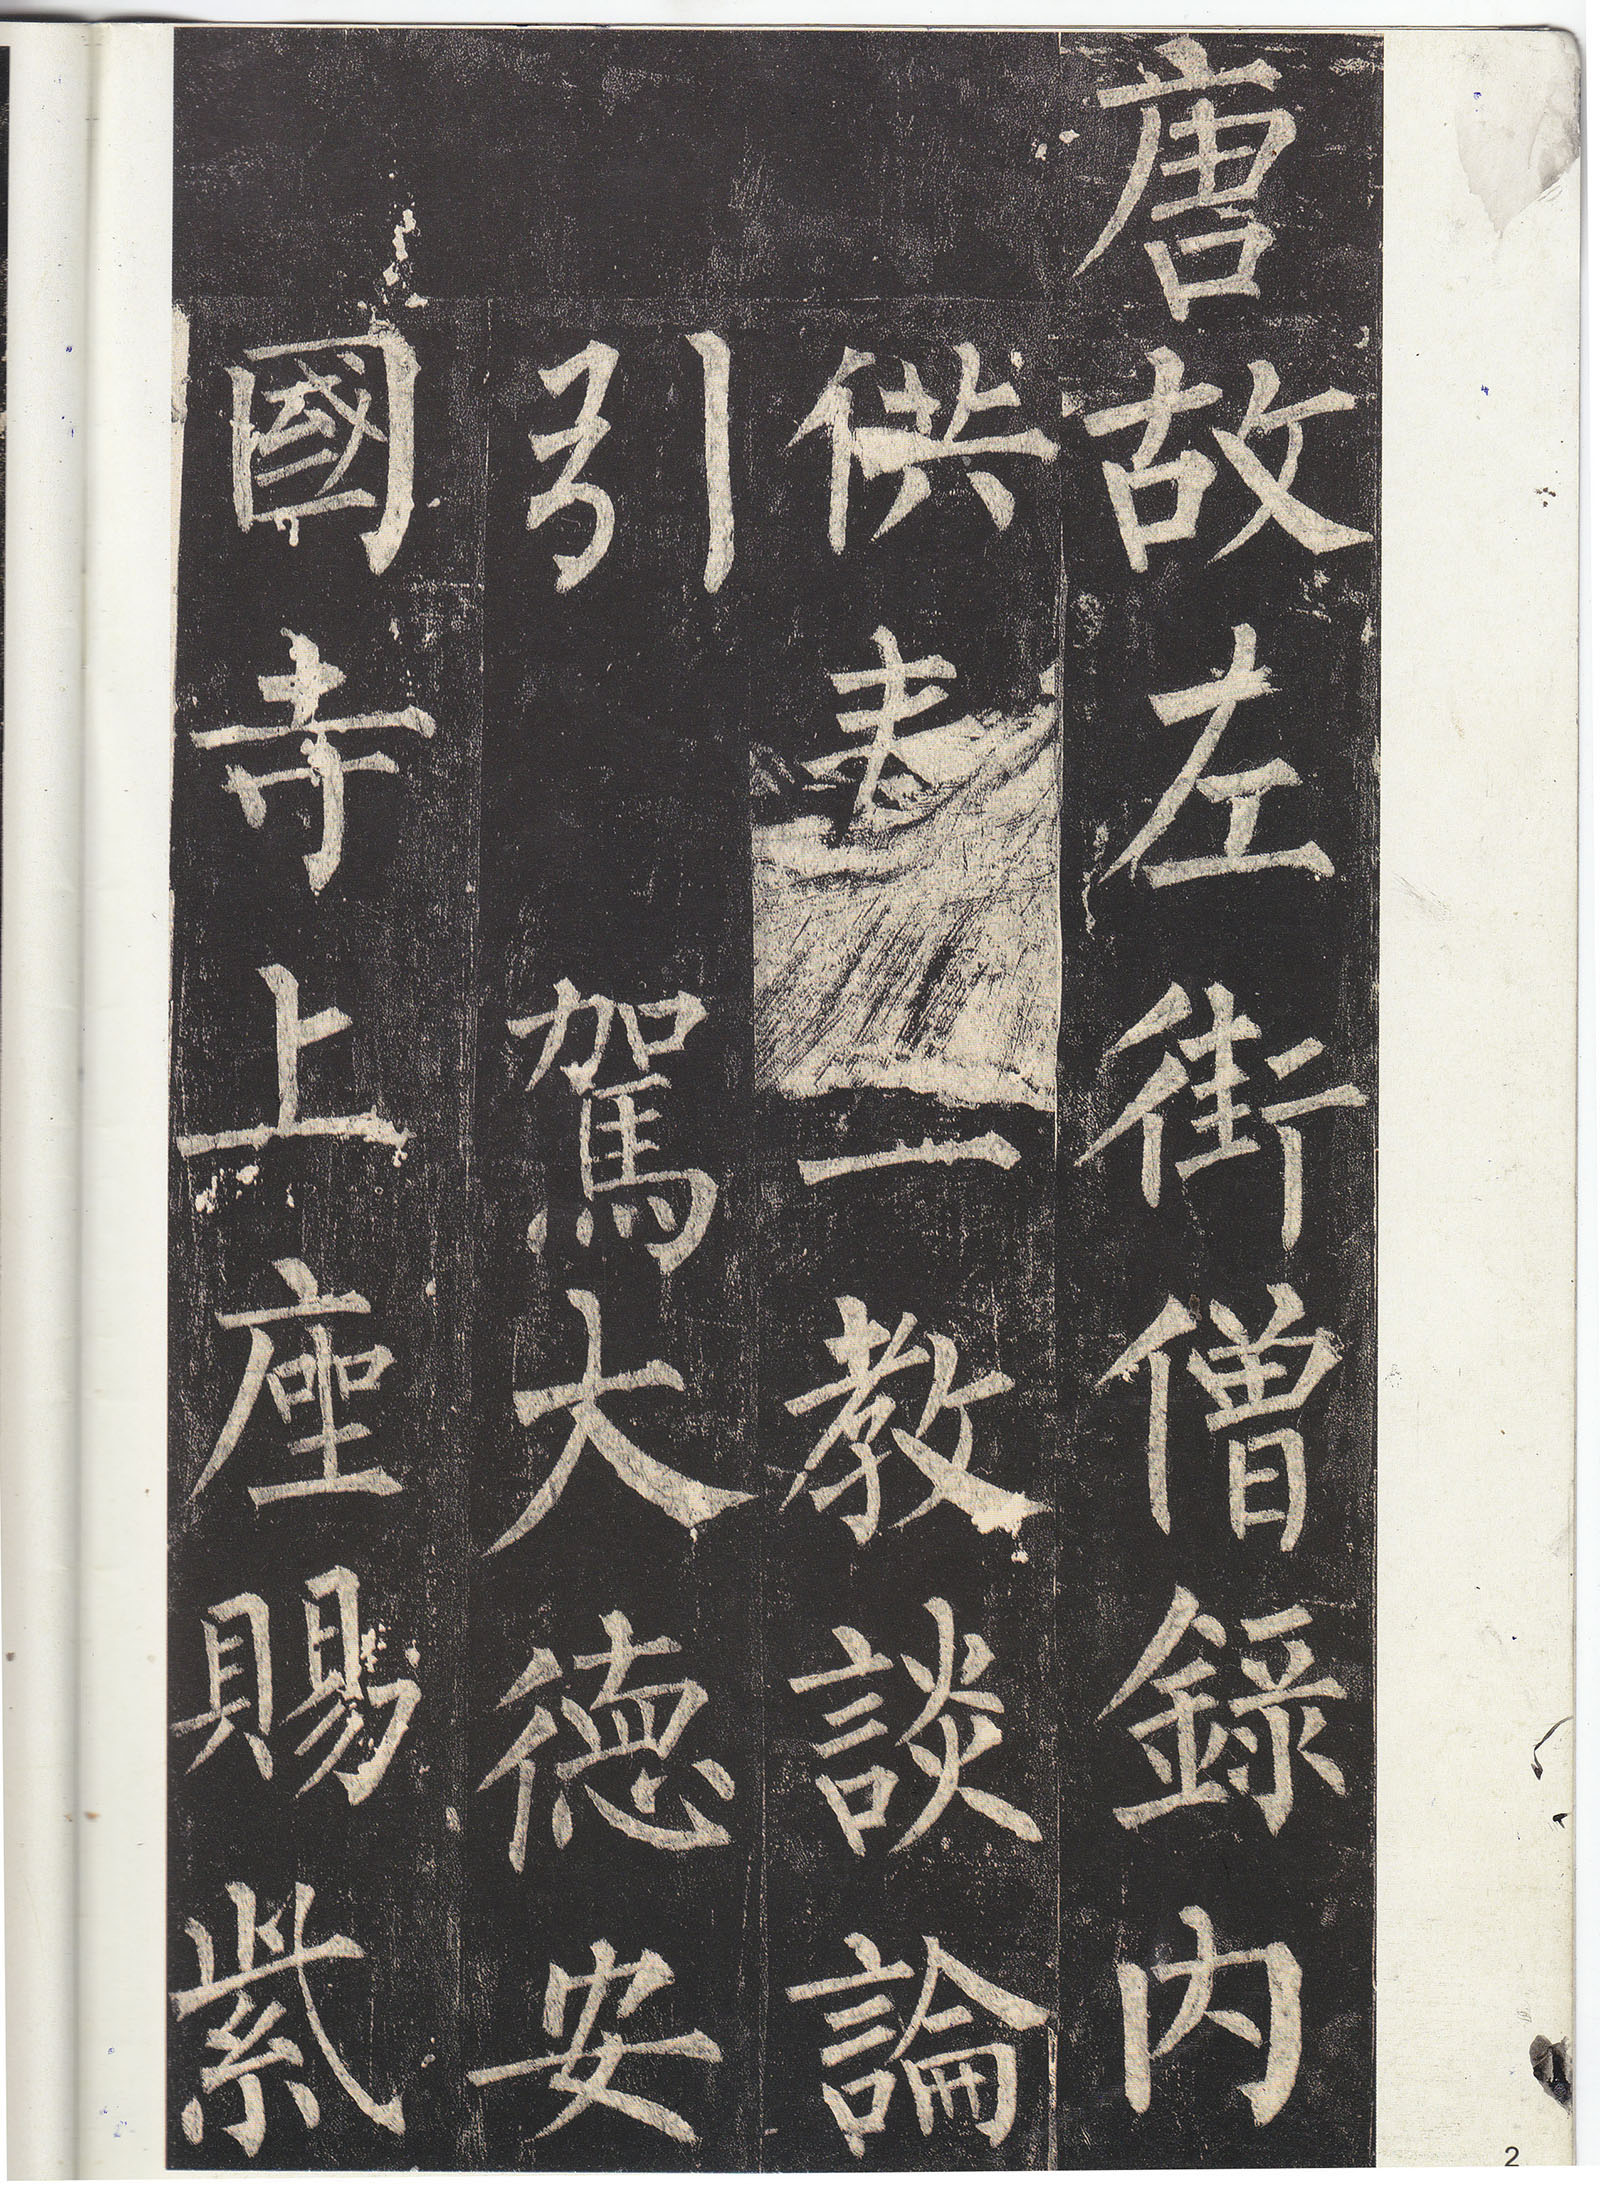 唐故左街僧錄內
供表一教談論
引駕大德安
國寺上座賜紫
2